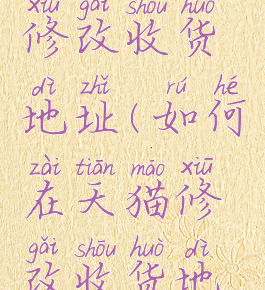 xiū gǎi shōu huò
修改收货
dì zhǐ rú hé
地址(如何
zài tiān māo xiū
在天猫修
gǎi shōu huò dì
改收货地